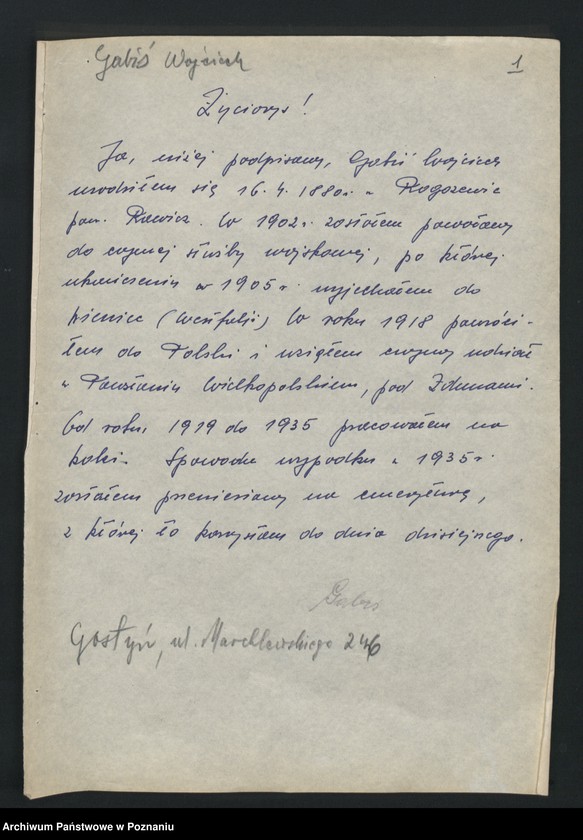 Gabiś Wojciech
1
Życiorys!
Ja, niżej podpisany, Gabiś Wojciech
urodziłem się 16.4.1880r. w Rogozewie
pow. Rawicz. W 1902r. zostałem powołany
do czynnej służby wojskowej, po której
ukończeniu w 1905r. wyjechałem do
Niemiec (Westfalji) W roku 1918 powróci-
łem do Polski i wziąłem czynny udział
w Powstaniu Wielkopolskiem, pod Zdunami.
Od roku 1919 do 1935 pracowałem na
kolei. Spowodu wypadku w 1935r.
zostałem przeniesiony na emeryturę,
z której to korzystam do dnia dzisiejszego.
Gabiś
Gostyń, ul. Marchlewskiego 246
Archiwum Państwowe w Poznaniu